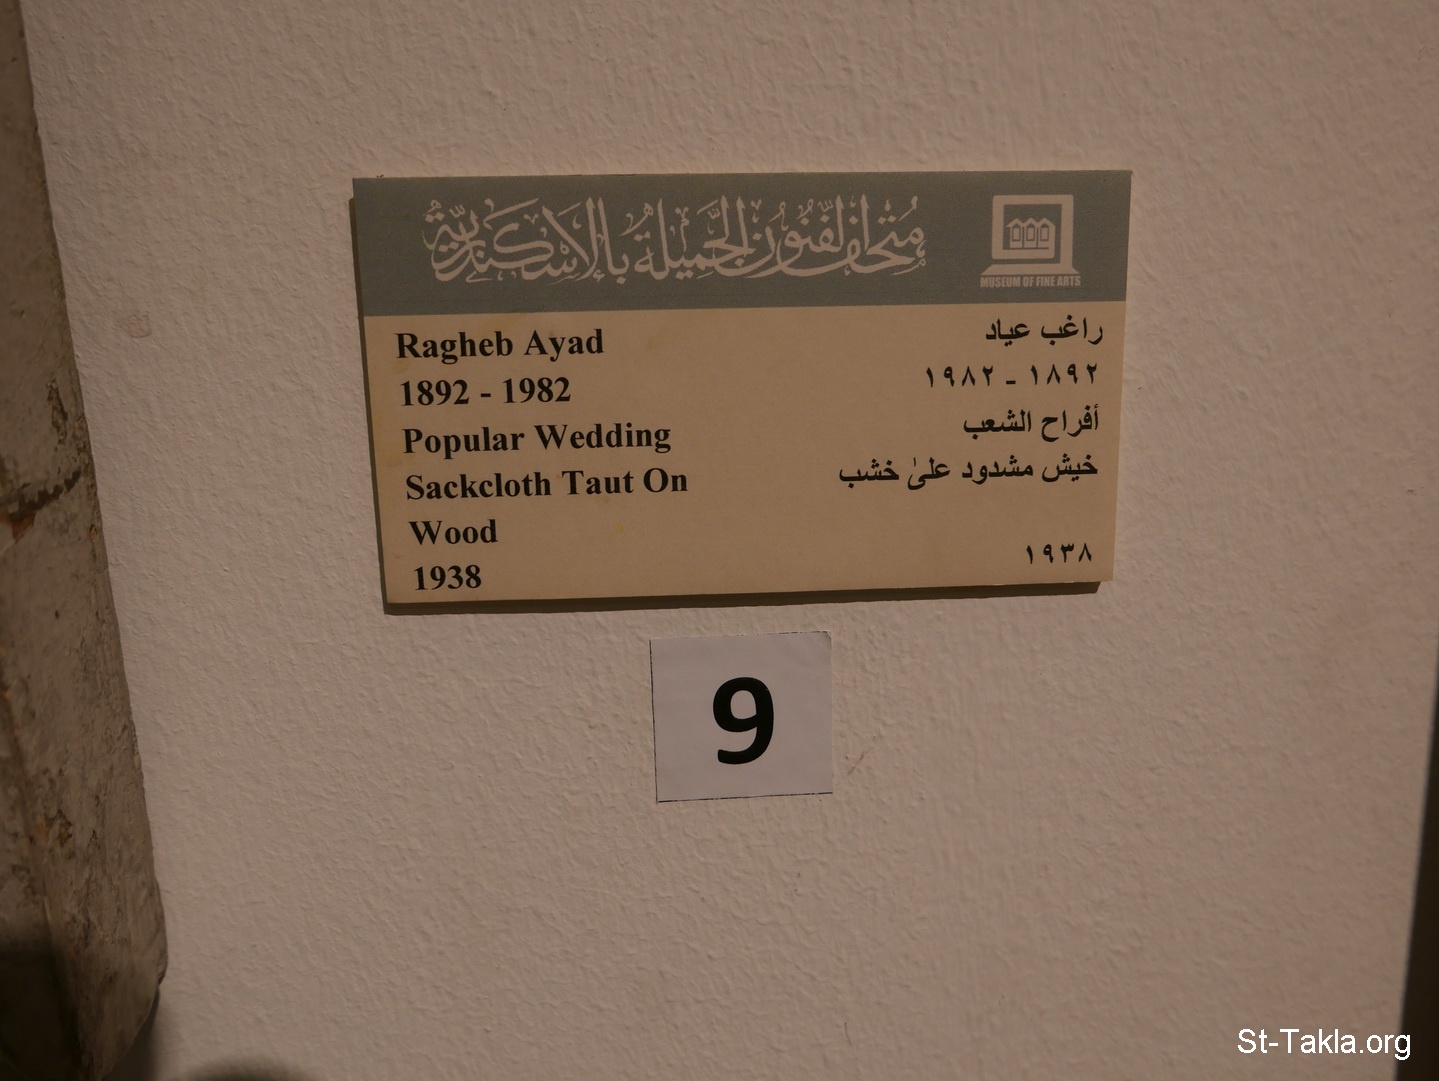 متحف الفنون الجميلة بالاسكندرية
MUSEUM OF FINE ARTS
Ragheb Ayad
1892 - 1982
Popular Wedding
Sackcloth Taut On
Wood
1938
راغب عياد
١٨٩٢ - ١٩٨٢
أفراح الشعب
خيش مشدود علىٰ خشب
١٩٣٨
9
St-Takla.org